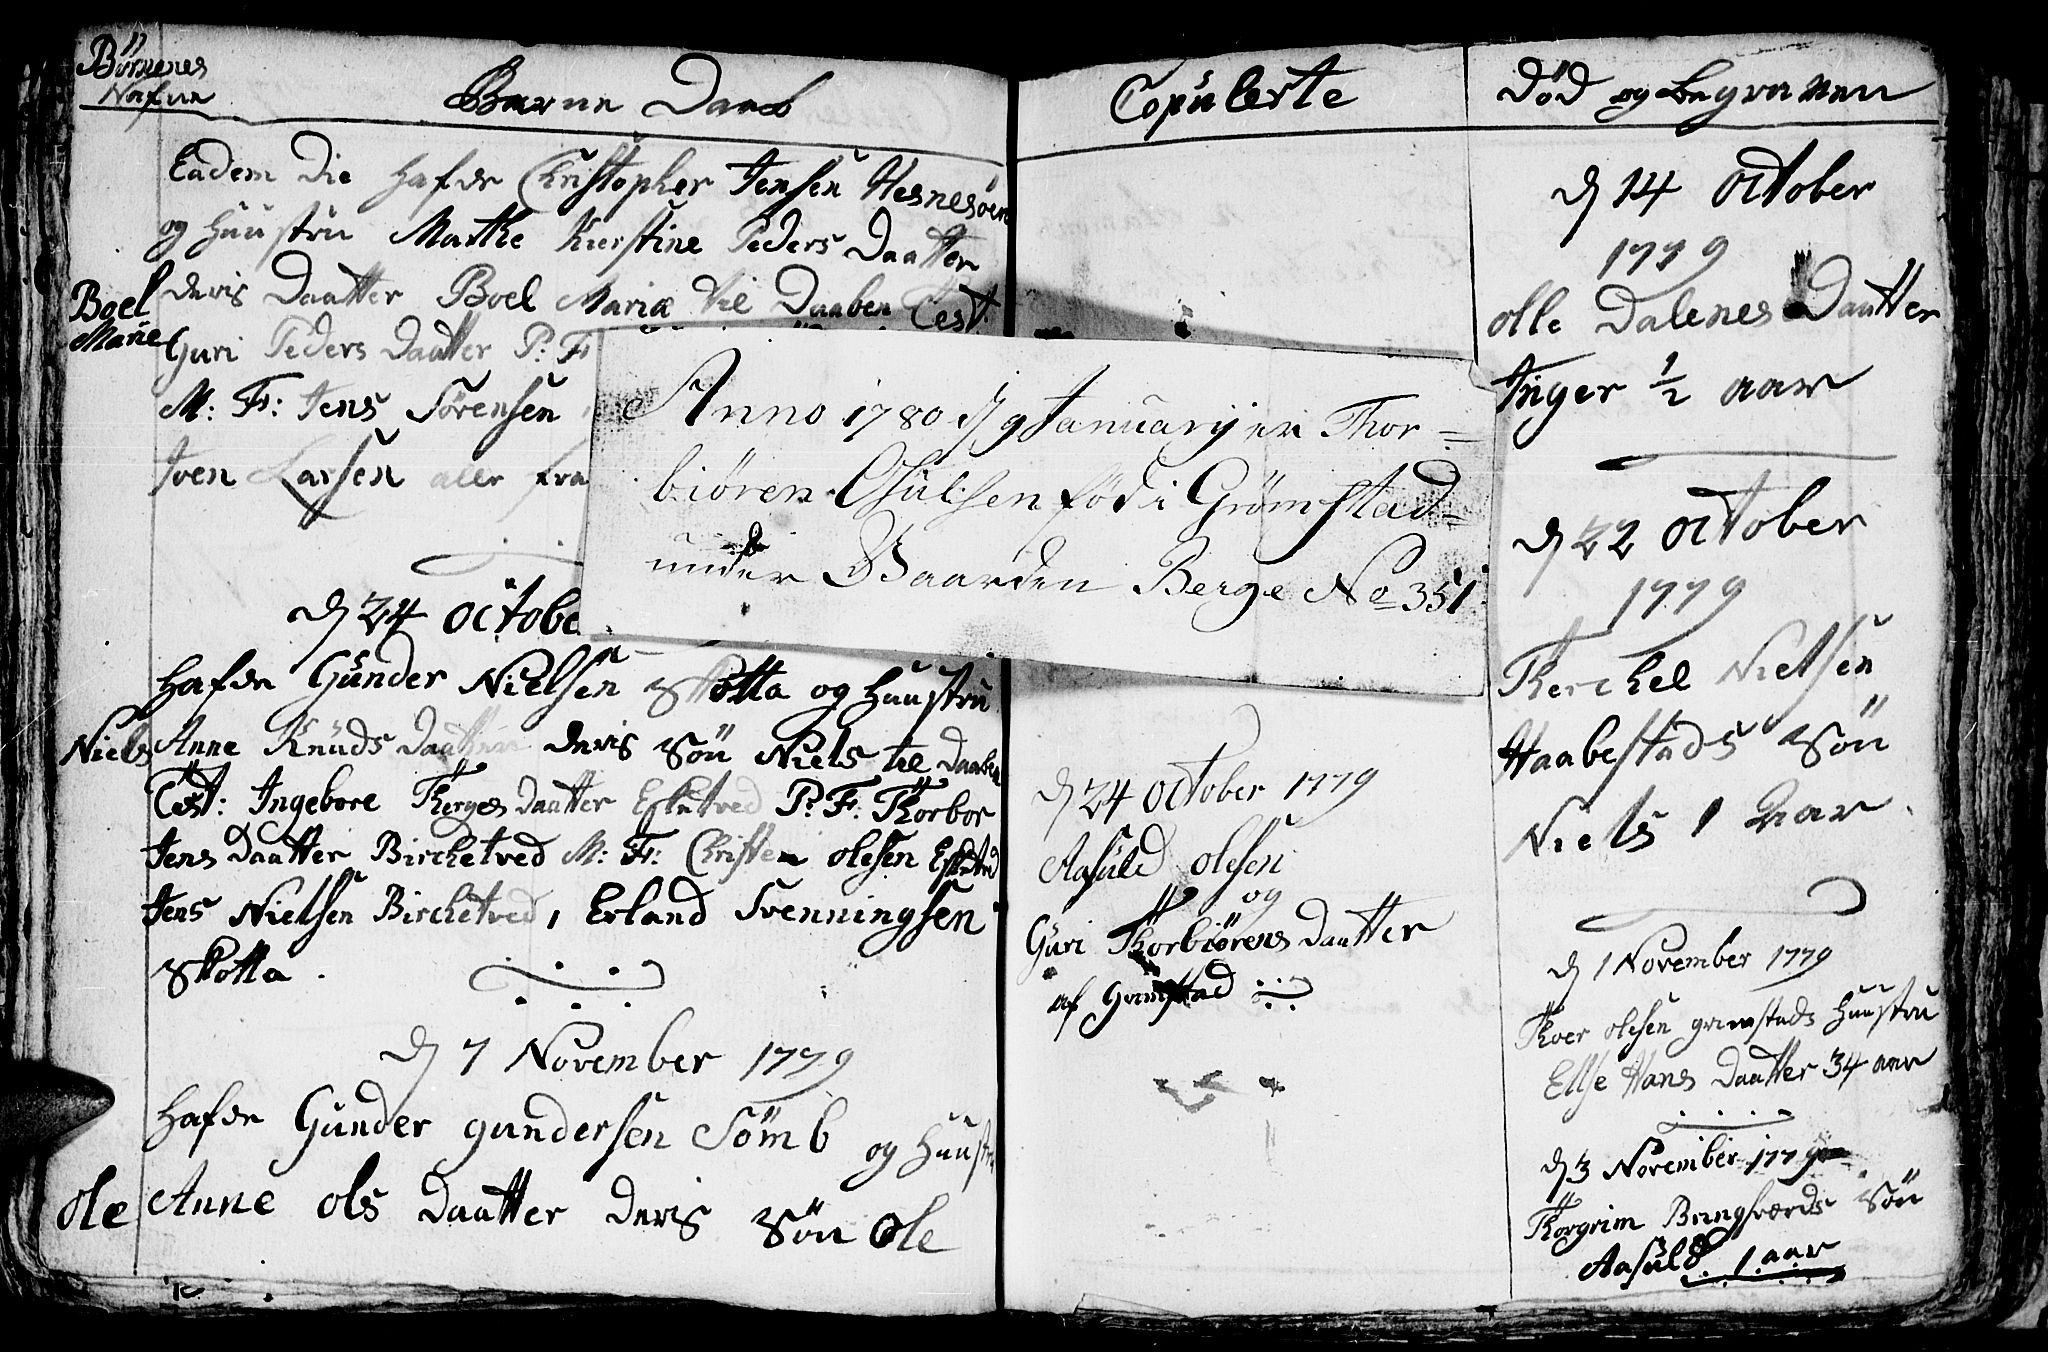 Börnenes
Nafne
Barne Daab
Eadem Die hafde Christopher Jensen Hesnesöen
og huustru Marthe Kierstine Peders Daatter
Boel
Marie
deris Daatter Boel Maria til Daaben Test:
Guri Peders Daatter P: F
M: F: Jens Sörensen
Iven Larsen alle fra
d 24 octobe
hafde Gunder Nielsen Skotta og huustru
Niels
Anne Knuds Daatter deris Sön Niels til Daaben
Test: Ingebore Therges Daatter Esketved P: F: Thorbor
Jens Daatter Birchetved M: F: Christen olesen Esketved
Jens Nielsen Birchetved, Erland Svenningsen
Skotta.
d 7 November 1779
hafde Gunder gundersen Sömb og huustru
ole
Anne ols Daatter deris Sön Ole
Copulerte
Anno 1780 d 9 Januarij er Thor=
biören Osulsen föd i Grömstad=
under Gaarden Berge No 351
d 24 october 1779
Aasuld olesen
og
Guri Thorbiörens Daatter
af Grimstad
Död og begraven
d 14 October
1779
olle Dalenes Daatter
Inger 1/2 aar
d 22 october
1779
Therchel Nielsen
Haabestads Sön
Niels 1 Aar.
d 1 November 1779
Thoer olesen grimstads huustru
Ellse Hans Daatter 34 aar
d 3 November 1779
Thorgrim Bringsværds Sön
Aasuld 1 aar